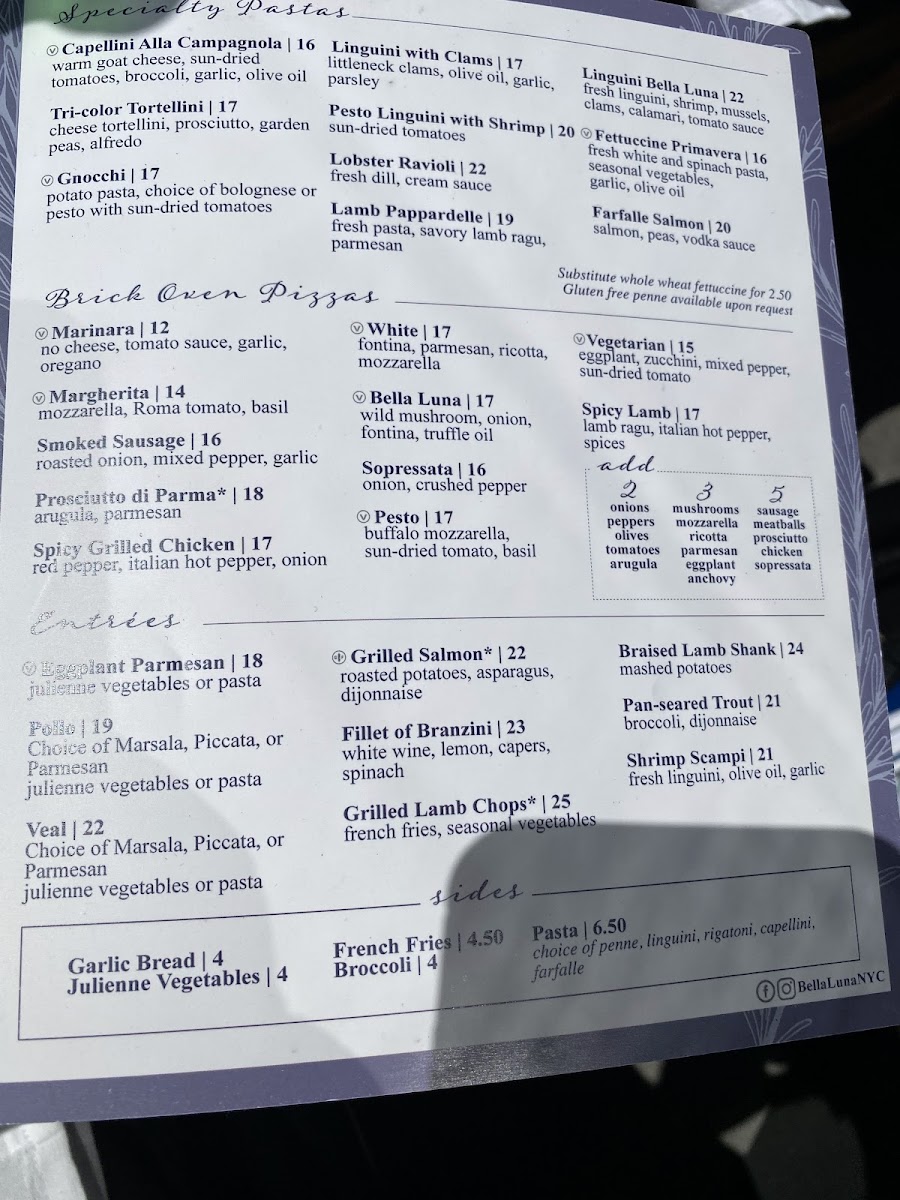 Specialty Pastas
Ⓥ Capellini Alla Campagnola | 16
warm goat cheese, sun-dried
tomatoes, broccoli, garlic, olive oil
Tri-color Tortellini | 17
cheese tortellini, prosciutto, garden
peas, alfredo
Ⓥ Gnocchi | 17
potato pasta, choice of bolognese or
pesto with sun-dried tomatoes
Linguini with Clams | 17
littleneck clams, olive oil, garlic,
parsley
Pesto Linguini with Shrimp | 20
sun-dried tomatoes
Lobster Ravioli | 22
fresh dill, cream sauce
Lamb Pappardelle | 19
fresh pasta, savory lamb ragu,
parmesan
Linguini Bella Luna | 22
fresh linguini, shrimp, mussels,
clams, calamari, tomato sauce
Ⓥ Fettuccine Primavera | 16
fresh white and spinach pasta,
seasonal vegetables,
garlic, olive oil
Farfalle Salmon | 20
salmon, peas, vodka sauce
Substitute whole wheat fettuccine for 2.50
Gluten free penne available upon request
Brick Oven Pizzas
Ⓥ Marinara | 12
no cheese, tomato sauce, garlic,
oregano
Ⓥ Margherita | 14
mozzarella, Roma tomato, basil
Smoked Sausage | 16
roasted onion, mixed pepper, garlic
Prosciutto di Parma* | 18
arugula, parmesan
Spicy Grilled Chicken | 17
red pepper, italian hot pepper, onion
Ⓥ White | 17
fontina, parmesan, ricotta,
mozzarella
Ⓥ Bella Luna | 17
wild mushroom, onion,
fontina, truffle oil
Sopressata | 16
onion, crushed pepper
Ⓥ Pesto | 17
buffalo mozzarella,
sun-dried tomato, basil
Ⓥ Vegetarian | 15
eggplant, zucchini, mixed pepper,
sun-dried tomato
Spicy Lamb | 17
lamb ragu, italian hot pepper,
spices
add
2
onions
peppers
olives
tomatoes
arugula
3
mushrooms
mozzarella
ricotta
parmesan
eggplant
anchovy
5
sausage
meatballs
prosciutto
chicken
sopressata
Entrées
Ⓥ Eggplant Parmesan | 18
julienne vegetables or pasta
Pollo | 19
Choice of Marsala, Piccata, or
Parmesan
julienne vegetables or pasta
Veal | 22
Choice of Marsala, Piccata, or
Parmesan
julienne vegetables or pasta
Grilled Salmon* | 22
roasted potatoes, asparagus,
dijonnaise
Fillet of Branzini | 23
white wine, lemon, capers,
spinach
Grilled Lamb Chops* | 25
french fries, seasonal vegetables
Braised Lamb Shank | 24
mashed potatoes
Pan-seared Trout | 21
broccoli, dijonnaise
Shrimp Scampi | 21
fresh linguini, olive oil, garlic
sides
Garlic Bread | 4
Julienne Vegetables | 4
French Fries | 4.50
Broccoli | 4
Pasta | 6.50
choice of penne, linguini, rigatoni, capellini,
farfalle
BellaLunaNYC